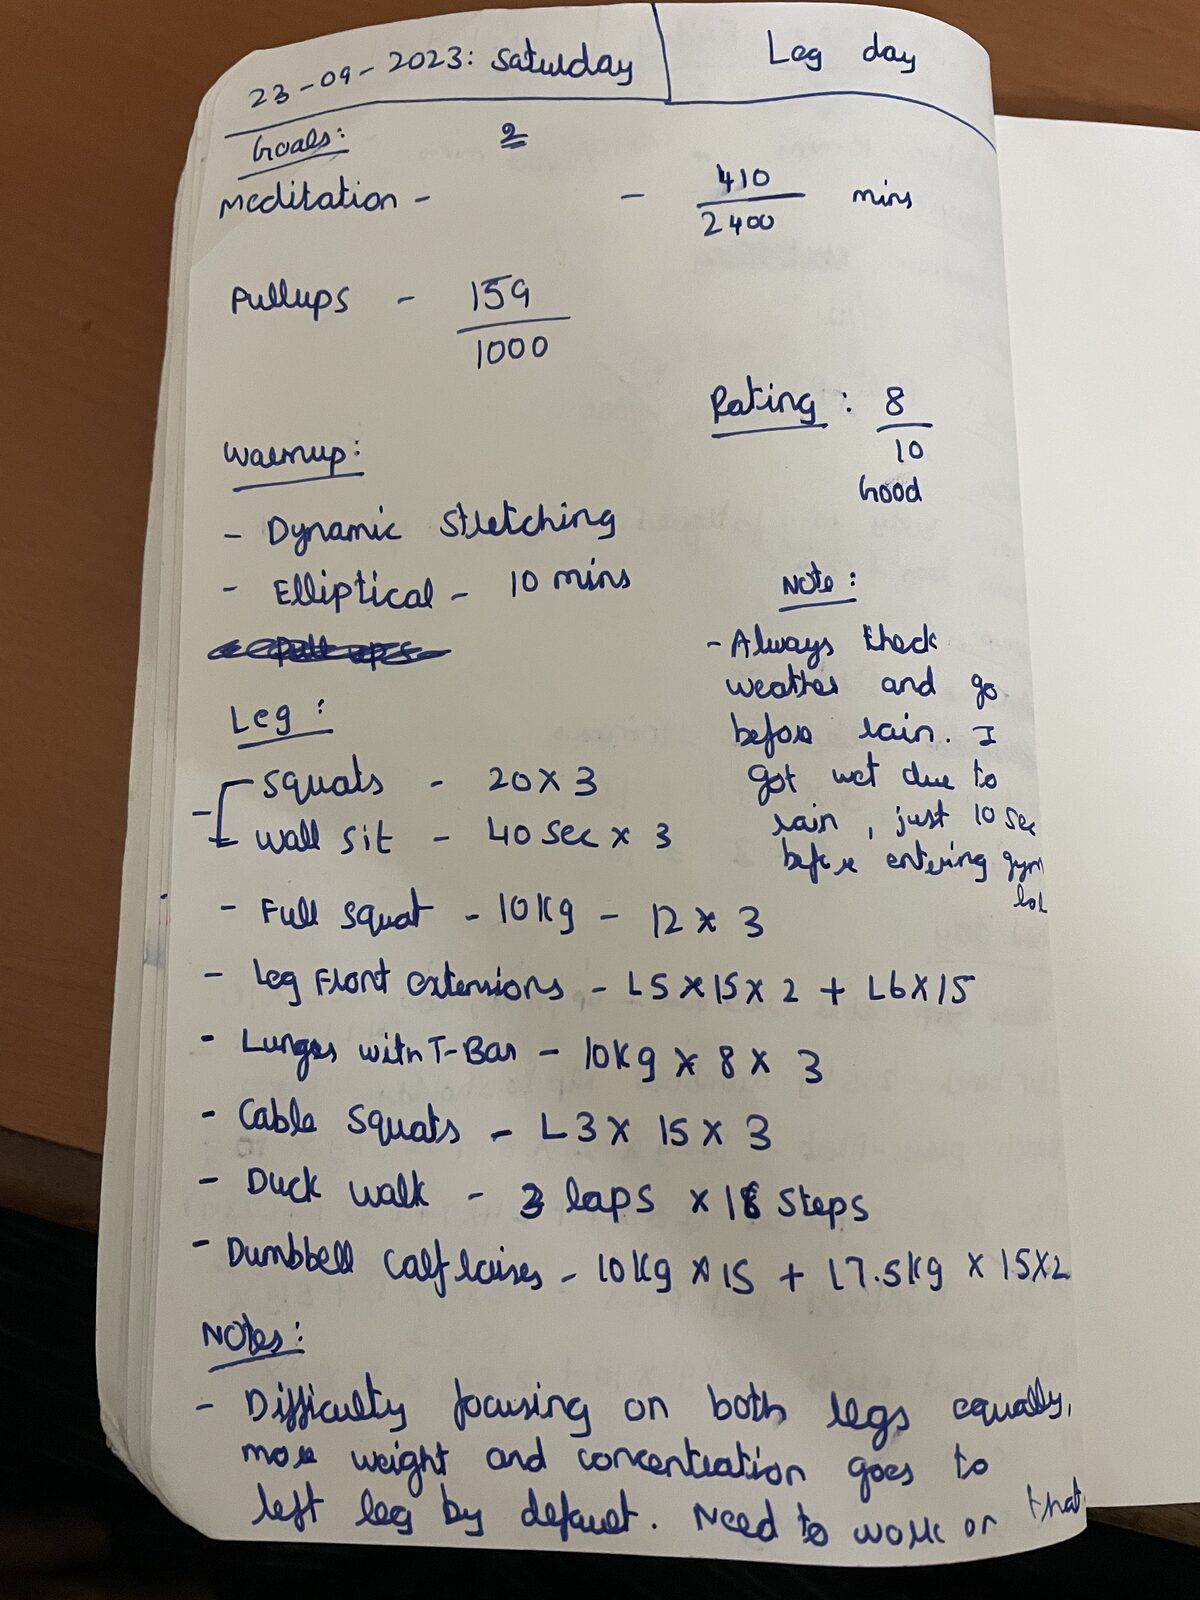 23-09-2023: Saturday
Leg day
Goals:
2
Meditation - - 410/2400 mins
Pullups - 159/1000
Rating: 8/10
Good
Warmup:
- Dynamic Stretching
- Elliptical - 10 mins
Pull ups
Note:
- Always check
weather and go
before rain. I
got wet due to
rain, just 10 sec
before entering gym
lol
Leg:
- Squats - 20 x 3
Wall sit - 40 sec x 3
- Full squat - 10kg - 12 x 3
- Leg Front extensions - L5 x 15 x 2 + L6 x 15
- Lunges with T-Bar - 10kg x 8 x 3
- Cable Squats - L3 x 15 x 3
- Duck walk - 3 laps x Steps
- Dumbbell calf raises - 10kg x 15 + 17.5kg x 15 x 2
Notes:
- Difficulty focusing on both legs equally,
more weight and concentration goes to
left leg by default. Need to work on that